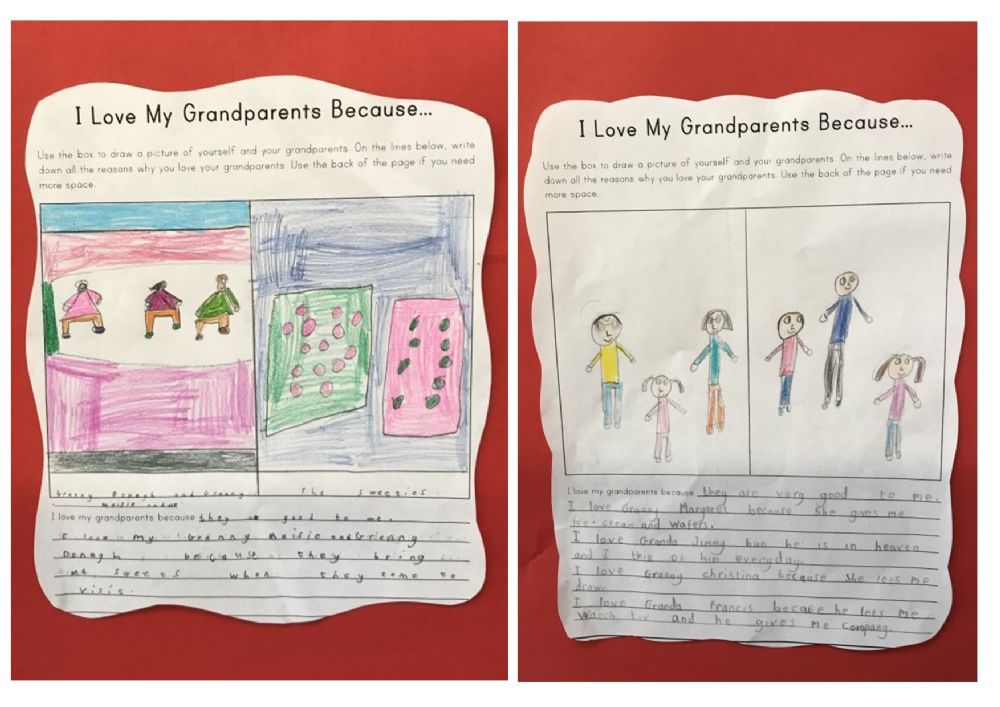 I Love My Grandparents Because...
Use the box to draw a picture of yourself and your grandparents. On the lines below, write
down all the reasons why you love your grandparents. Use the back of the page if you need
more space.
Granny Donagh and Granny
Maisie
the sweeties.
I love my grandparents because they good to me.
I love my Granny Maisie and Granny
Donagh because they bring
me sweets when they come to
visit.
I Love My Grandparents Because...
Use the box to draw a picture of yourself and your grandparents. On the lines below, write
down all the reasons why you love your grandparents. Use the back of the page if you need
more space.
I love my grandparents because they are very good to me.
I love Granny Margaret because she gives me
Ice-cream and wafers.
I love Granda Jimmy but he is in heaven
and I think of him everyday.
I love Granny christina because she lets me
draw.
I love Granda Francis becase he lets me
watch tv and he gives me compang.